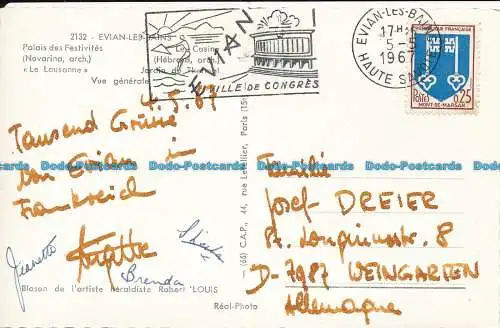 2132 - EVIAN-LES-BAINS
Palais des Festivités
(Novarina, arch.)
« Le Lausanne »
Le Casino
(Hébrard, arch.)
Jardin du Thermal
Vue générale
EVIAN
VILLE DE CONGRÈS
EVIAN-LES-BAINS
17H
5-5
1967
HAUTE SAVOIE
REPUBLIQUE FRANCAISE
POSTES
0,25
MONT-DE-MARSAN
4.5.67
Tausend Grüsse
von Evian in
Frankreich
Jeanette
Brigitte
Brenda
Blason de l'artiste héraldiste Robert LOUIS
Réal-Photo
— (66) C.A.P., 44, rue Letellier, Paris (15e)
Familie
Josef DREIER
St. Longinusstr. 8
D-7987 WEINGARTEN
Allemagne
Dodo-Postcards Dodo-Postcards Dodo-Postcards Dodo-Postcards Dodo-Postcards